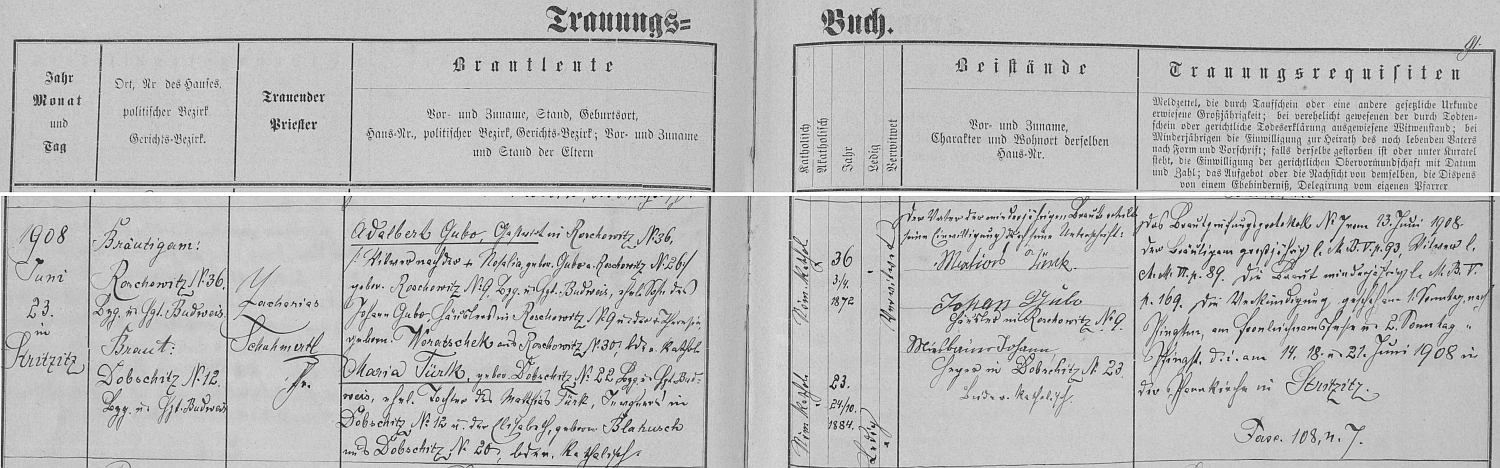 Trauungs=
Buch.
91.
Jahr
Monat
und
Tag
Ort, Nr des Hauses,
politischer Bezirk
Gerichts-Bezirk.
Trauender
Priester
Brautleute
Vor- und Zuname, Stand, Geburtsort,
Haus-Nr., politischer Bezirk, Gerichts-Bezirk; Vor- und Zuname
und Stand der Eltern
Katholisch
Akatholisch
Jahr
Ledig
Verwitwet
Beistände
Vor- und Zuname,
Charakter und Wohnort derselben
Haus-Nr.
Trauungsrequisiten
Meldzettel, die durch Taufschein oder eine andere gesetzliche Urkunde
erwiesene Großjährigkeit; bei verehelicht gewesenen der durch Todten-
schein oder gerichtliche Todeserklärung ausgewiesene Witwenstand; bei
Minderjährigen die Einwilligung zur Heirath des noch lebenden Vaters
nach Form und Vorschrift; falls derselbe gestorben ist oder unter Kuratel
steht, die Einwilligung der gerichtlichen Obervormundschaft mit Datum
und Zahl; das Aufgebot oder die Nachsicht von demselben, die Dispens
von einem Ehehinderniß, Delegirung vom eigenen Pfarrer
1908
Juni
23.
in
Stritzitz
Bräutigam:
Roschowitz N. 36.
Bzg. u. Ggt. Budweis.
Braut:
Dobschitz N. 12.
Bzg. u. Ggt. Budweis
Zacharias
Schahmertl
Adalbert Gubo, Gastwirt in Roschowitz N. 36,
Witwer nach der + Rosalia, geb. Gubo a. Roschowitz N. 26/
gebor. Roschowitz N. 9, Bzg. u. Ggt. Budweis, ehel. Sohn des
Johann Gubo, Häuslers in Roschowitz N. 9 und der Theresia
geborn. Woratschek aus Roschowitz N. 30, bde. Kathol.
Maria Türk, gebor. Dobschitz N. 22 Bzg. u. Ggt. Bud-
weis, ehel. Tochter des Matthias Türk, in
Dobschitz N. 12 u. der Elisabeth, geborn. Blahusch
aus Dobschitz N. 20, beder. Katholisch.
Röm. Kathol.
36
3/4
1872
Verwitwet
Röm. Kathol.
23.
24/10.
1884.
Ledig
Der Vater der minderjährigen Braut erteilt
seine Einwilligung durch seine Unterschrift:
Türk.
Johan Gubo
Häusler in Roschowitz N. 9.
Johann,
in Dobschitz N. 23
Beide r. Katholisch.
Das Brautprüfungsprotokoll N. 7 vom 23. Juni 1908.
Der Bräutigam großjährig l. M. B. V. p. 93, Witwer l.
M. VI. p. 89. Die Braut minderjährig l. M. B. V.
p. 169. Die Verkündigung, geschehen 1. Sonntag nach
Pfingsten, am Fronleichnamsfeste u. 2. Sonntag n.
Pfingst. d. i. am 14. 18. u. 21. Juni 1908 in
der Pfarrkirche in Stritzitz.
Fasc. 108, n. 7.